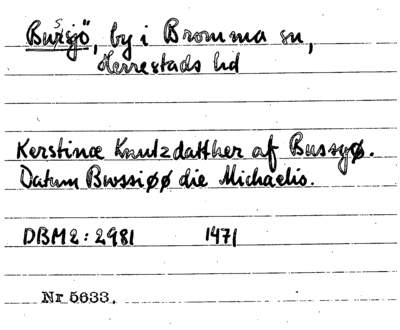 Bussjö, by i Bromma sn,
Herrestads hd
Kerstinæ Knutzdatther af Bussyø.
Datum Bwssiøø die Michaelis.
DBM 2: 2981 1471
Nr 5633.